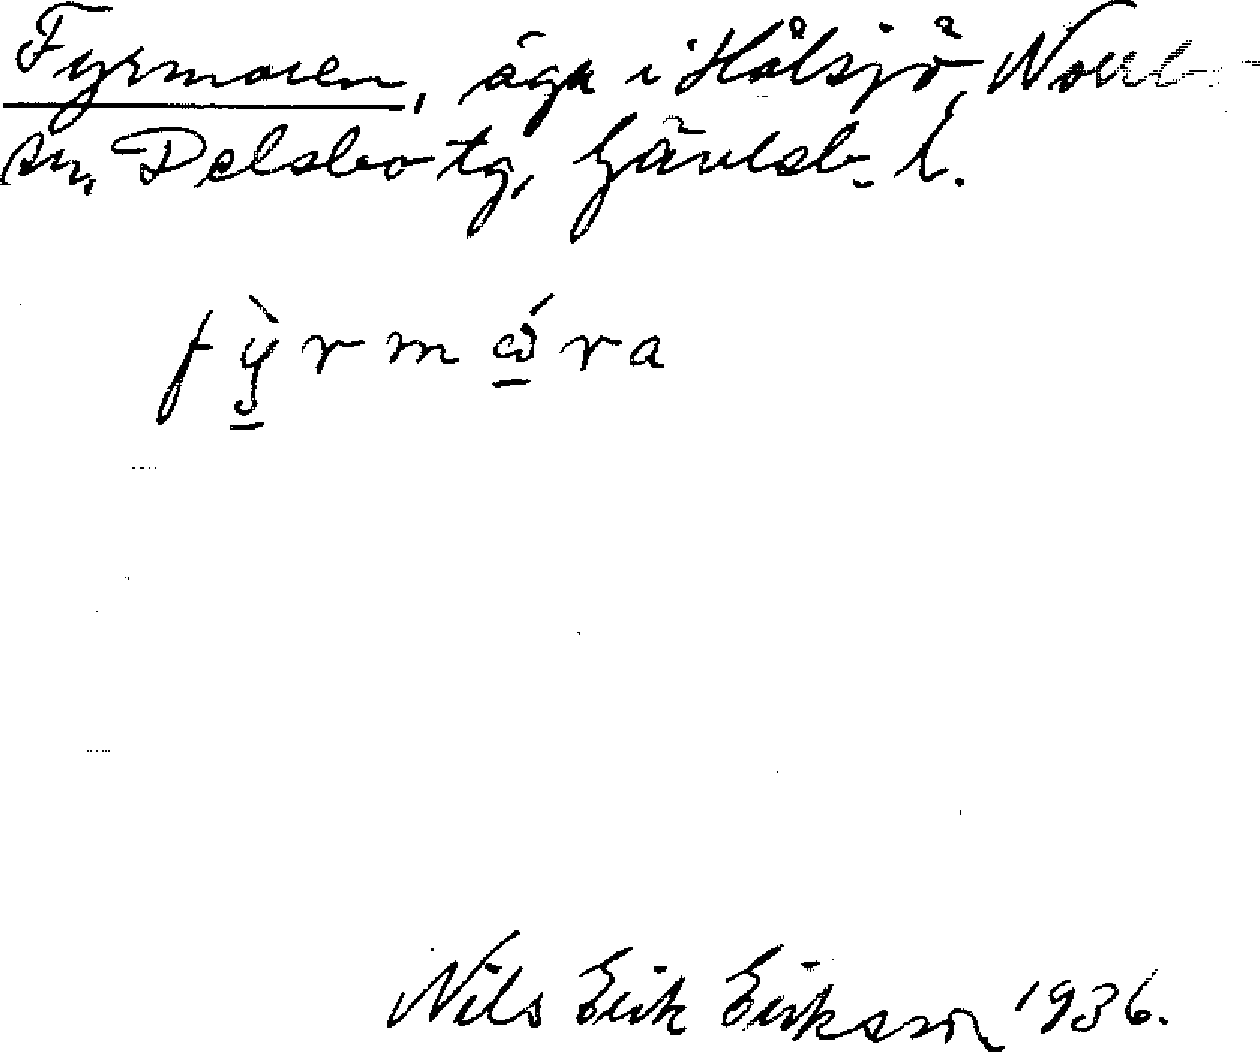 Fyrmoren, äga i Hålsjö, Norrb-
sn, Delsbo tg, Gävleb. l.
fỳ̠rmɷ̠́ra
Nils Erik Eriksson 1936.